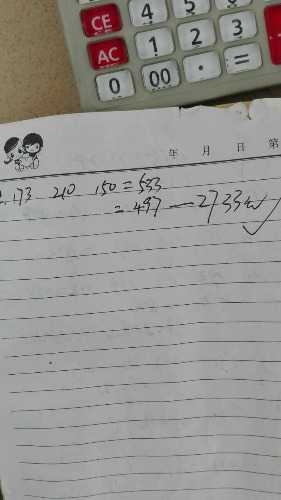 4 5 6
CE 1 2 3
AC 0 00 · =
年 月 日 第
173 210 150 = 533
= 497 — 2733